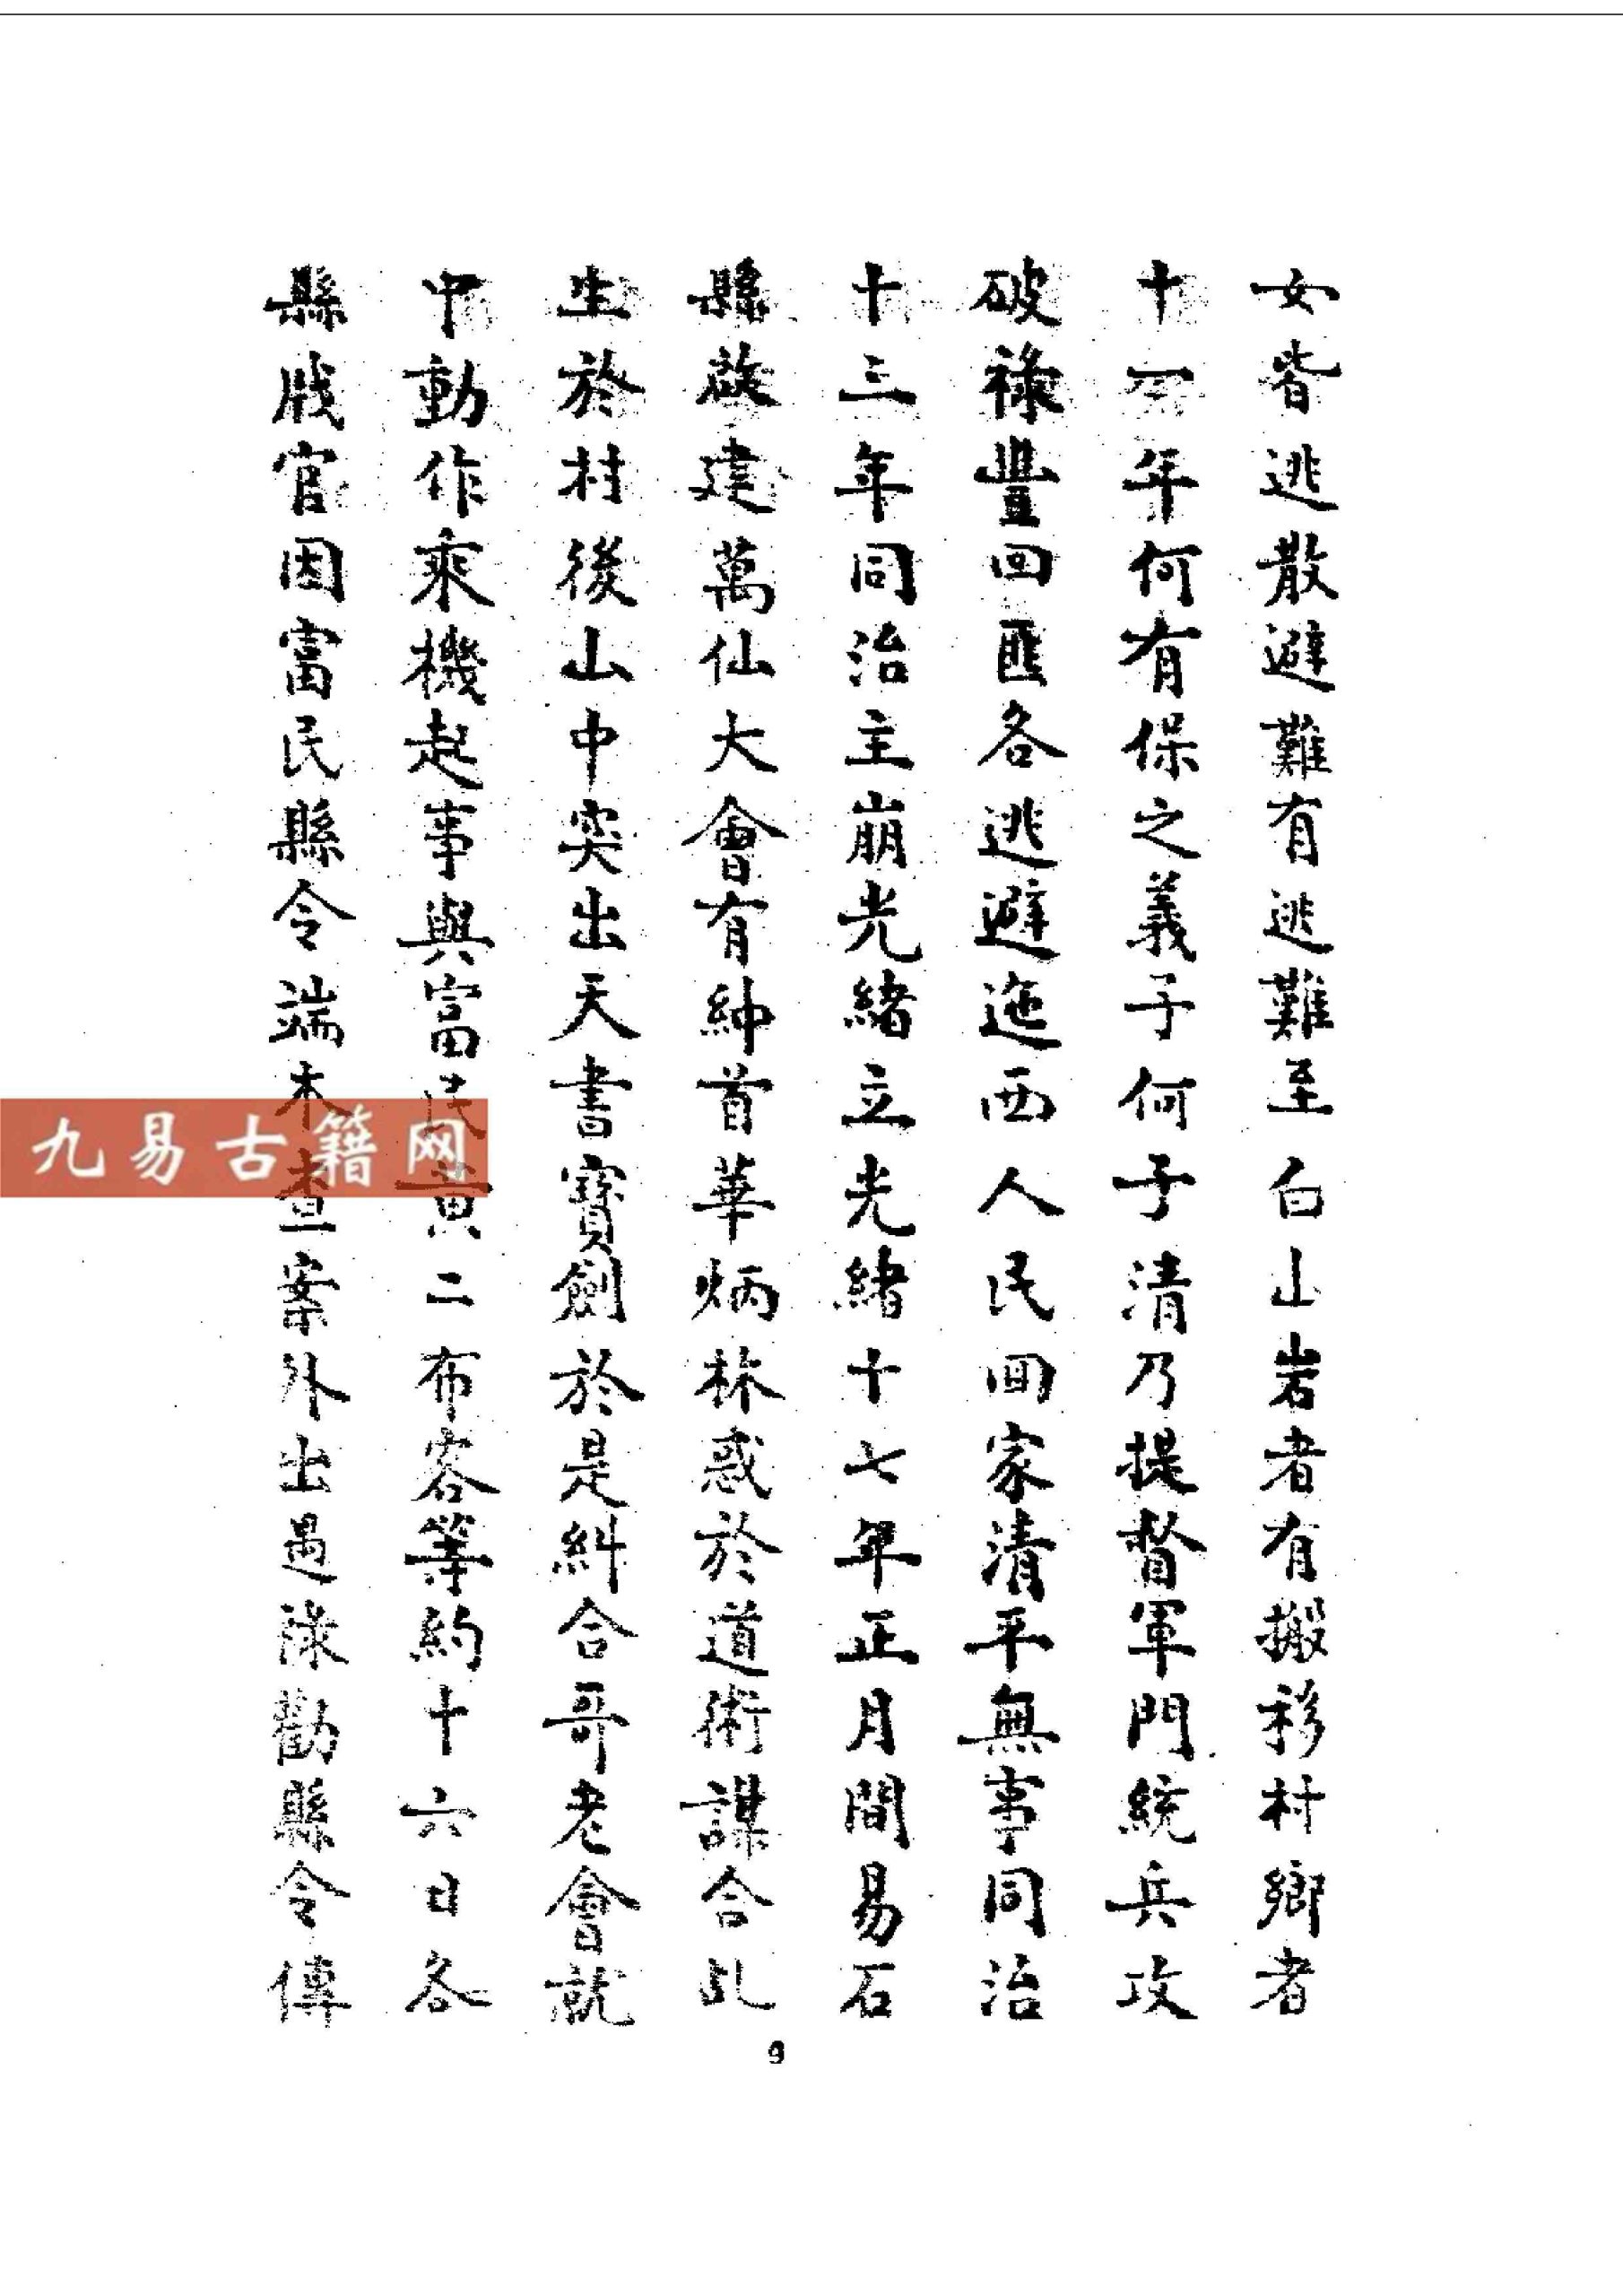 女皆逃散避難有逃難至白山岩者有搬移村鄉者
十一年何有保之義子何子清乃提督軍門統兵攻
破祿豐回匪各逃避迤西人民回家清平無事同治
十三年同治主崩光緒立光緒十七年正月間易石
縣啟建萬仙大會有紳首華炳林惑於道術謀合乩
生於村後山中突出天書寶劍於是糾合哥老會就
中動作乘機起事與富民黃二布客等約十六日各
縣戕官因富民縣令端木查案外出遇祿勸縣令傳
九易古籍网
9